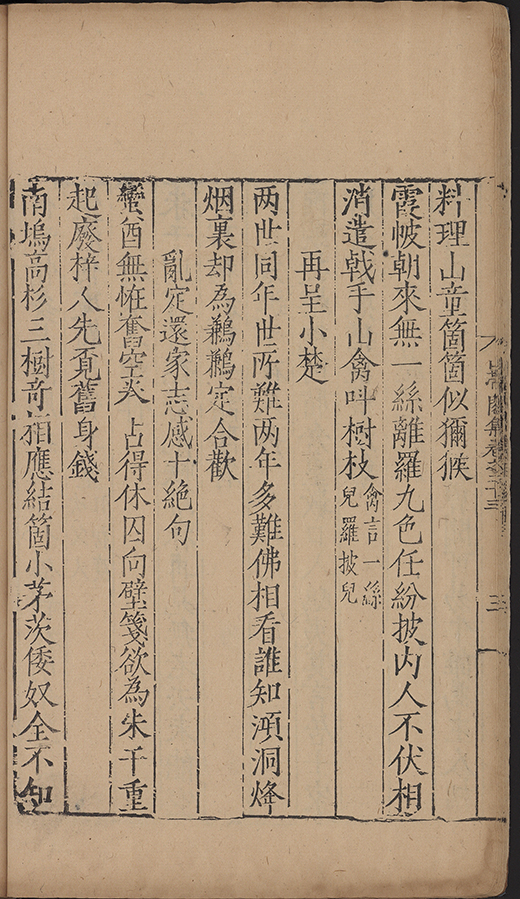 料理山童箇箇似獼猴
霞帔朝來無一絲離羅九色任紛披内人不伏相
消遣戟手山禽呌樹枝禽言一絲兒羅披兒
再呈小楚
两世同年世所難两年多難佛相看誰知澒洞烽
烟裏却為鶼鶼定合歡
亂定還家志感十絶句
蠻酋無恠奮空拳占得休囚向壁箋欲為朱干重
起廢梓人先覔舊身錢
南塢高杉三樹竒猶應結箇小茅茨倭奴全不知
三